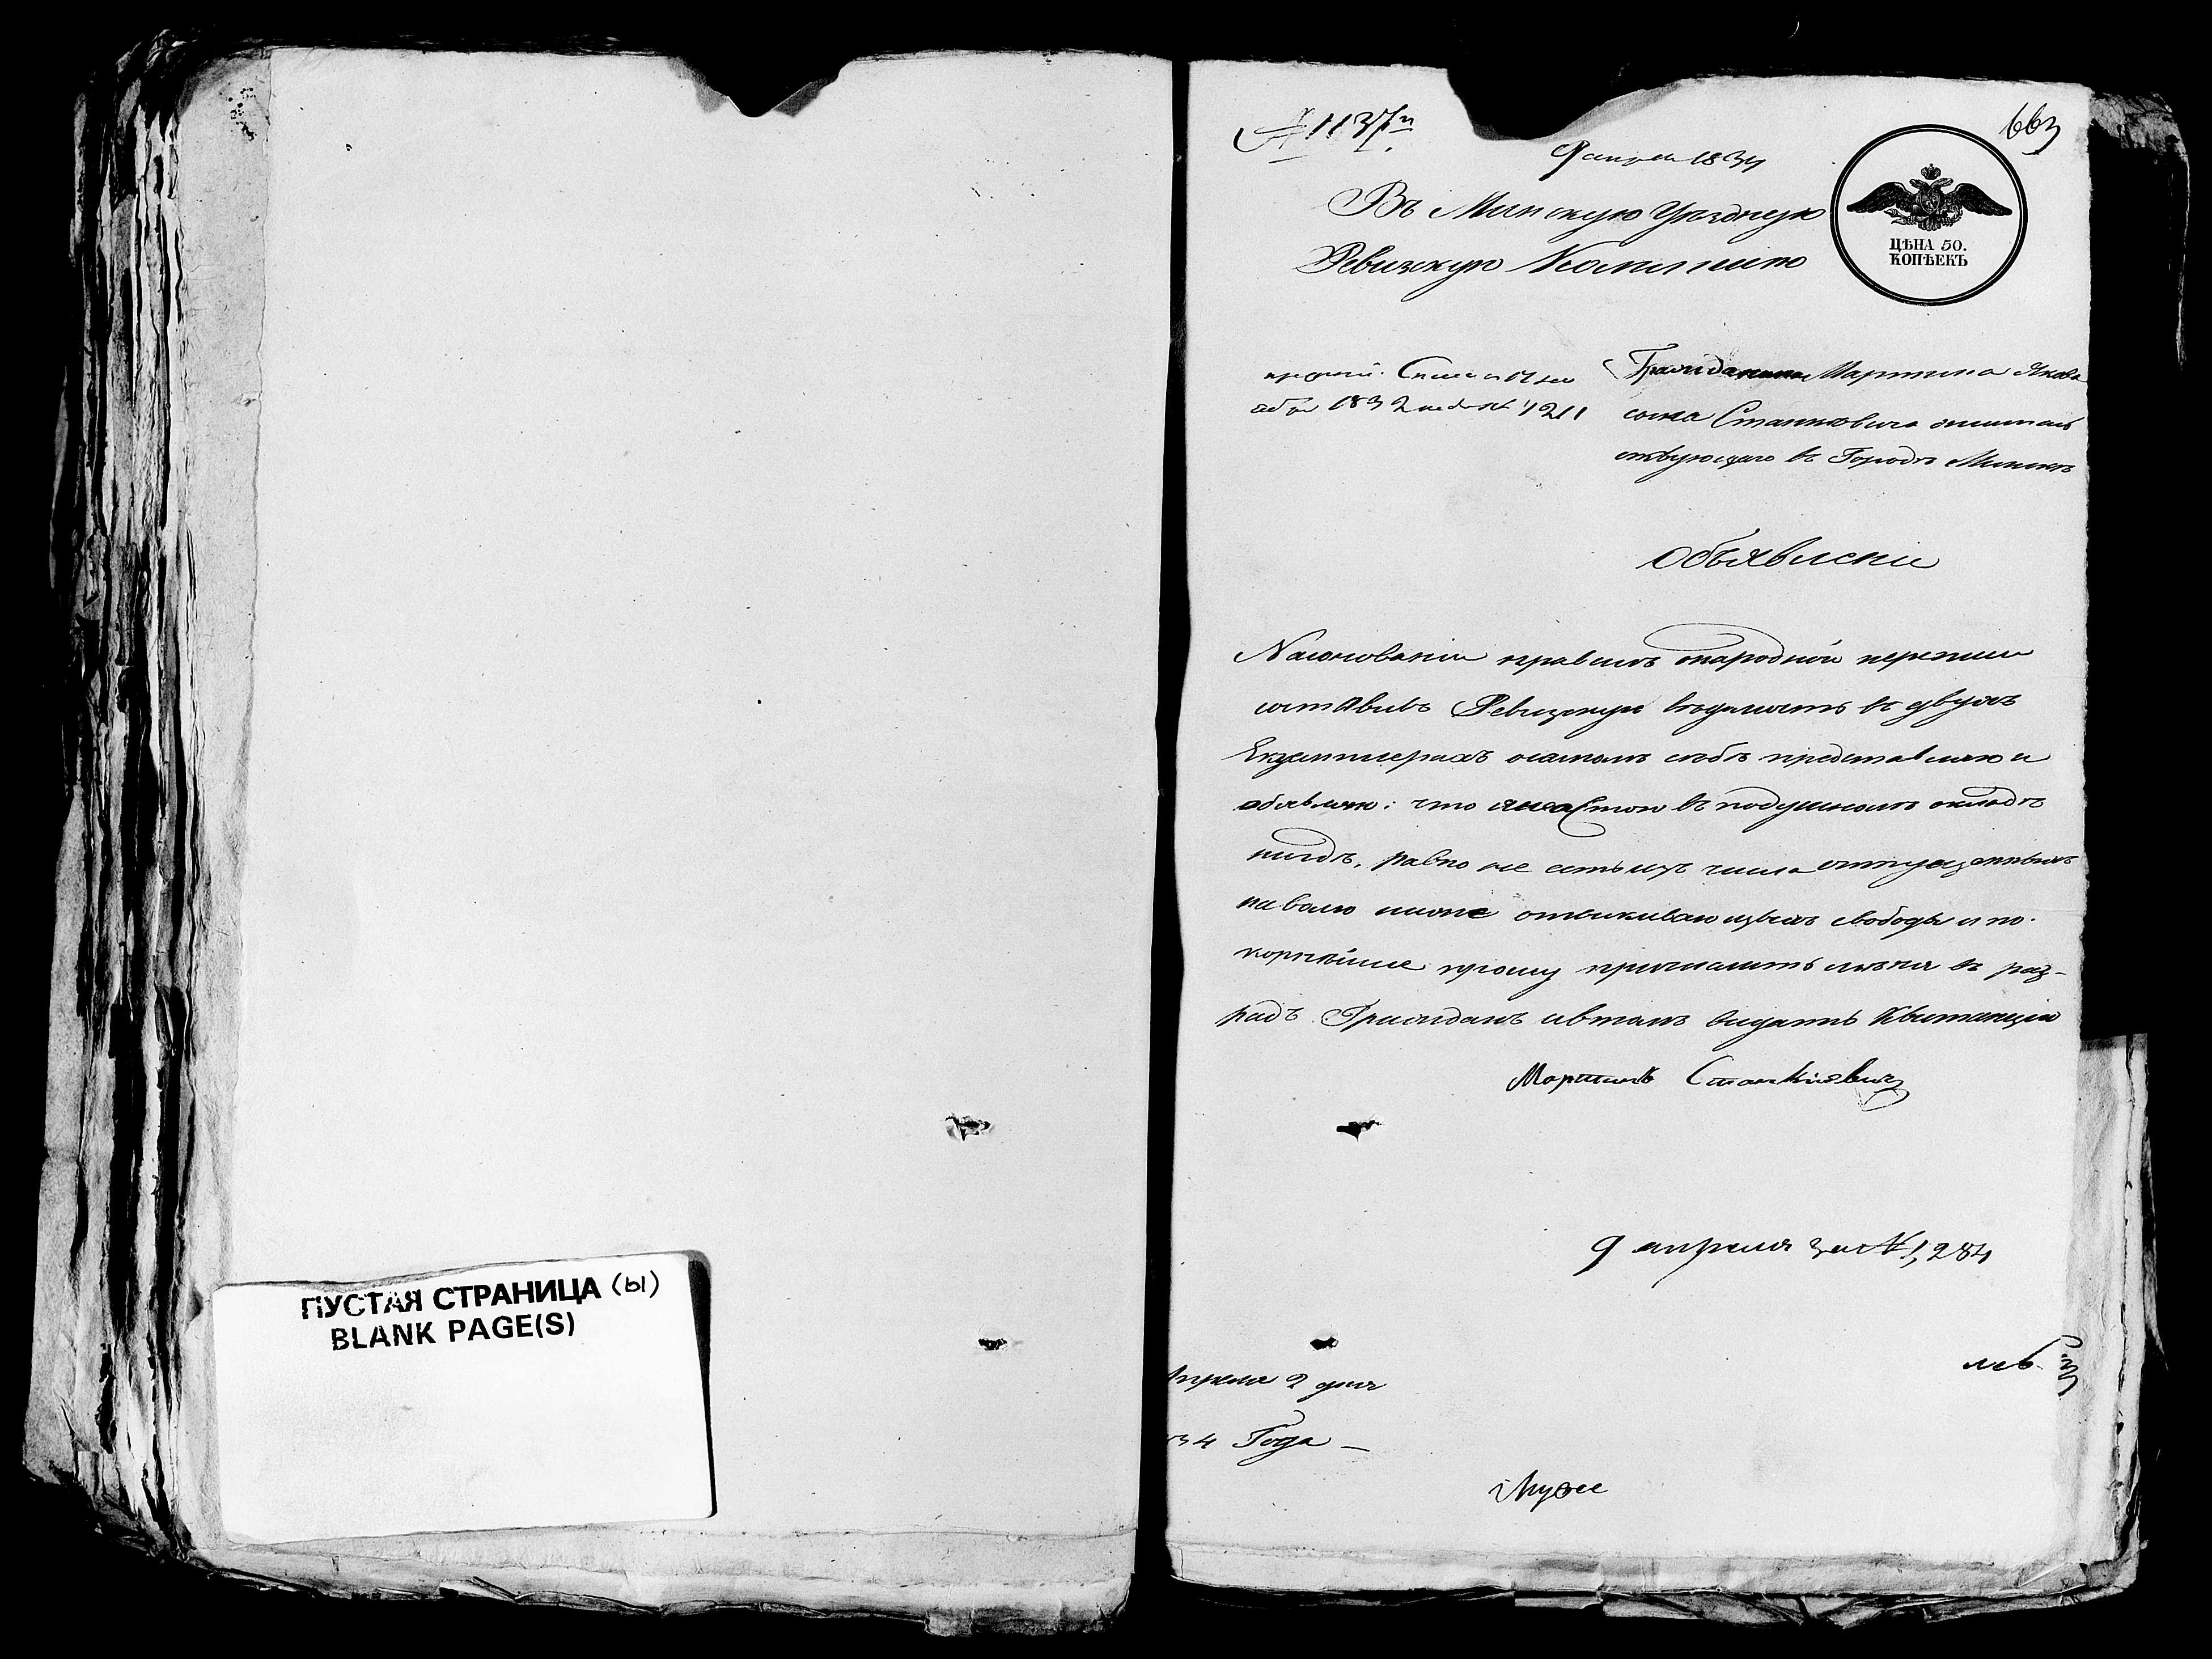 ПУСТАЯ СТРАНИЦА (ы)
BLANK PAGE(S)
№ 1137й
663
9 апреля 1834
Въ Минскую Уѣздную
Ревизскую Комиссию
ЦѢНА 50.
КОПѢЕКЪ
1832 № 4211
Гражданина Мартина Якова
сына Станкевича жительс
ствующаго въ Городѣ Минскѣ
Объявление
На основании правилъ о народной переписи
составивъ Ревизскую вѣдомость въ двухъ
Екземплерахъ о самомъ себѣ представляю и
объявляю: что я не состою въ подушномъ окладѣ
нигдѣ, равно не есть изъ числа отпущенныхъ
на волю или отыскивающихъ свободы и по-
корнѣйше прошу причислить меня въ раз-
рядъ Гражданъ и втомъ видать Квитанцію
Мартинъ Станкіевичъ
9 апреля за № 1,284
Апреля 2 дня
34 Года